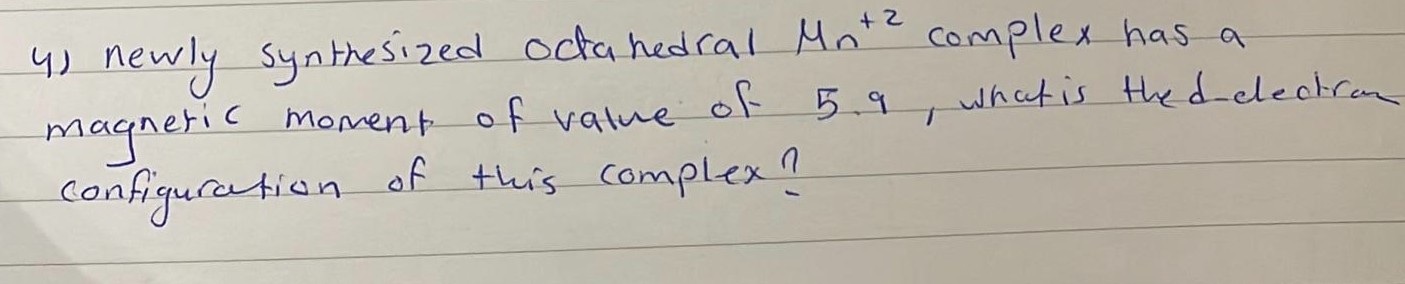 4) newly synthesized octahedral Mn+2 complex has a
magnetic moment of value of 5.9, what is the d-electron
configuration of this complex?